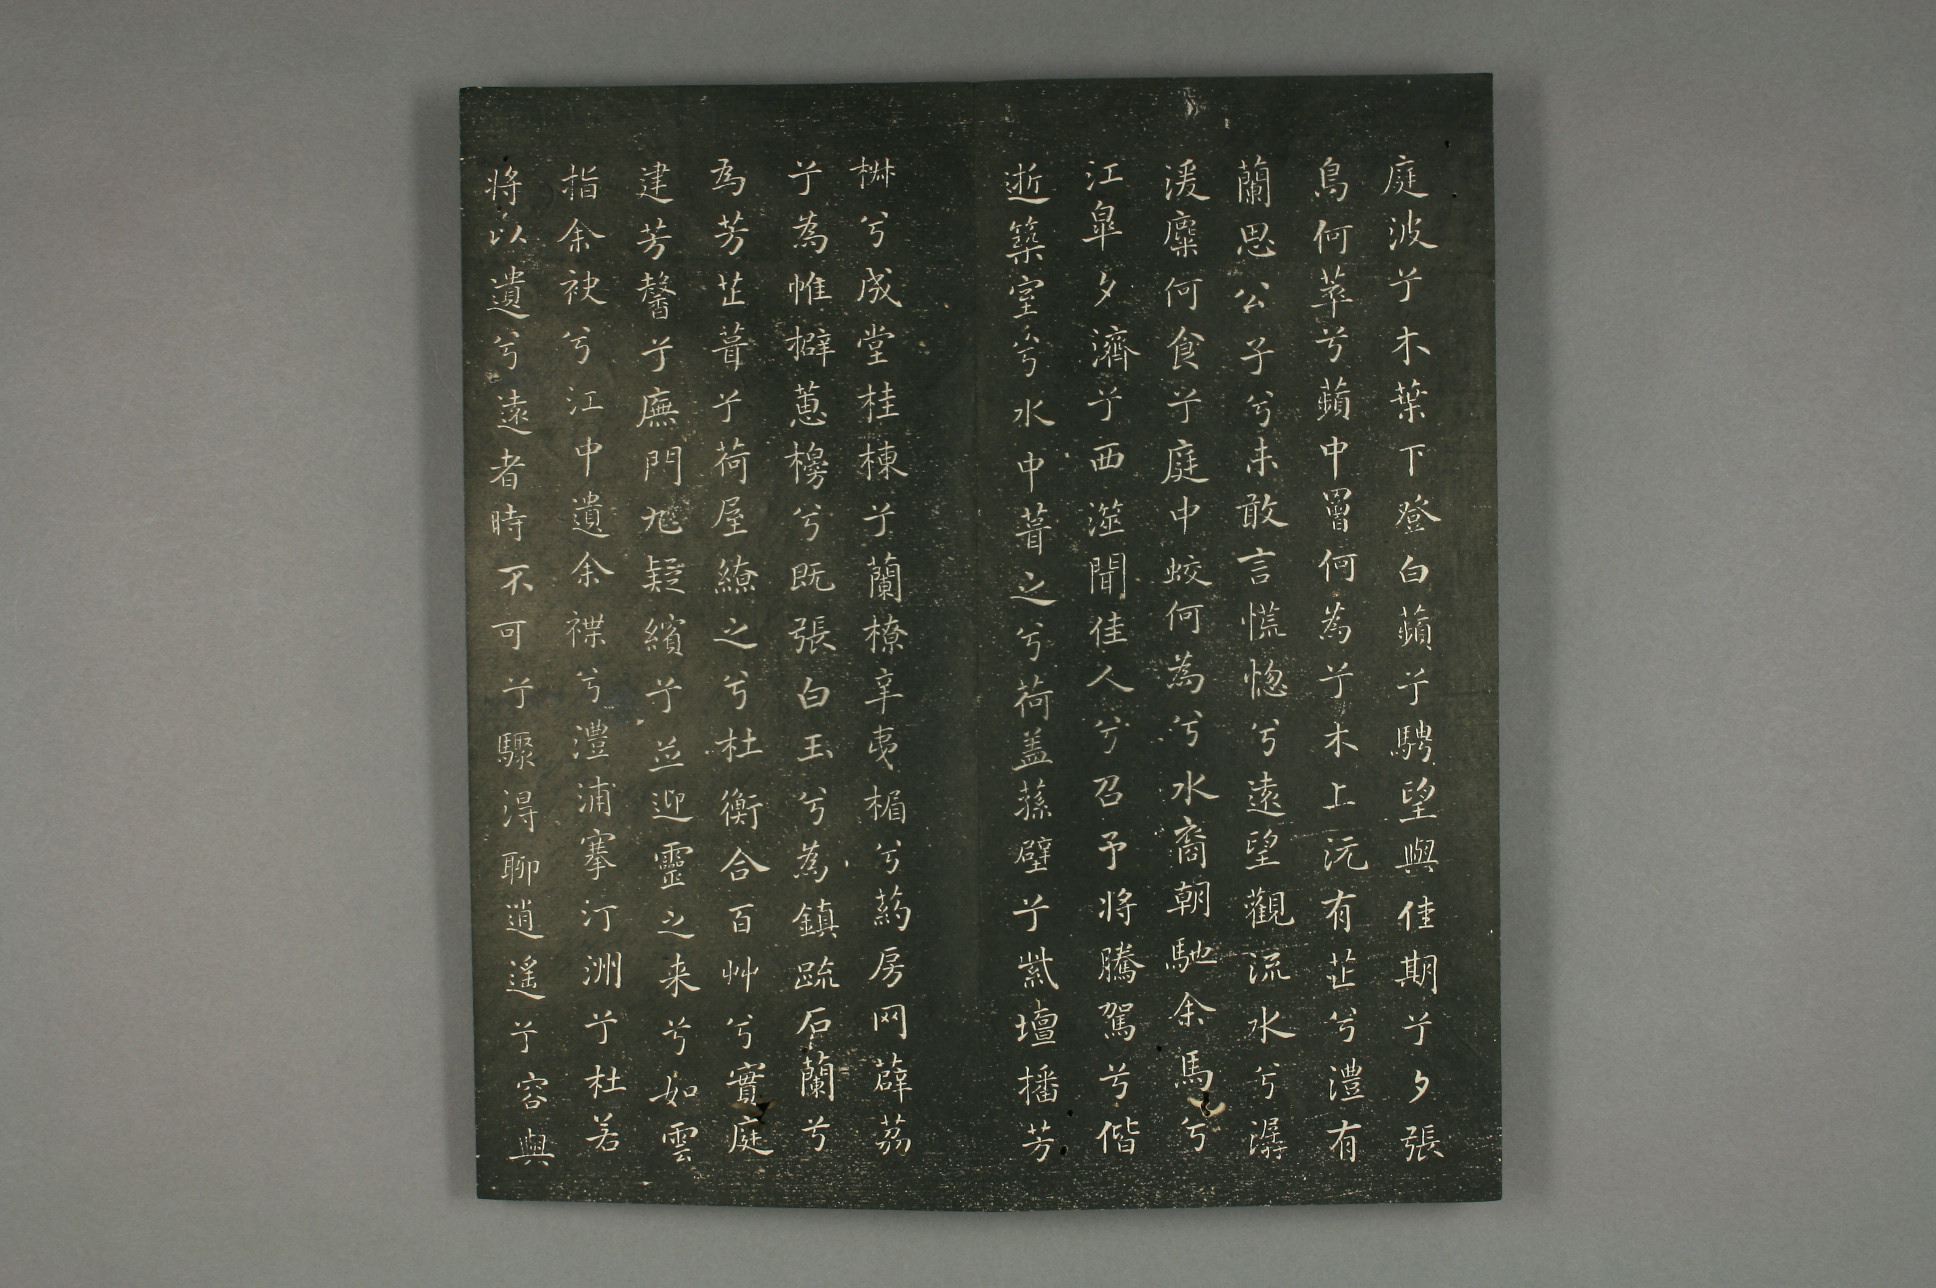 庭波兮木葉下登白蘋兮騁望與佳期兮夕張
鳥何萃兮蘋中罾何為兮木上沅有芷兮澧有
蘭思公子兮未敢言慌惚兮遠望觀流水兮潺
湲麋何食兮庭中蛟何為兮水裔朝馳余馬兮
江皐夕濟兮西澨聞佳人兮召予将騰駕兮偕
逝築室兮水中葺之兮荷盖蓀壁兮紫壇播芳
椒兮成堂桂棟兮蘭橑辛夷楣兮葯房网薜荔
兮為帷擗蕙櫋兮既張白玉兮為鎮疏石蘭兮
為芳芷葺兮荷屋繚之兮杜衡合百艸兮實庭
建芳馨兮廡門九疑繽兮並迎靈之来兮如雲
捐余袂兮江中遺余褋兮澧浦搴汀洲兮杜若
将以遺兮遠者時不可兮驟得聊逍遥兮容與